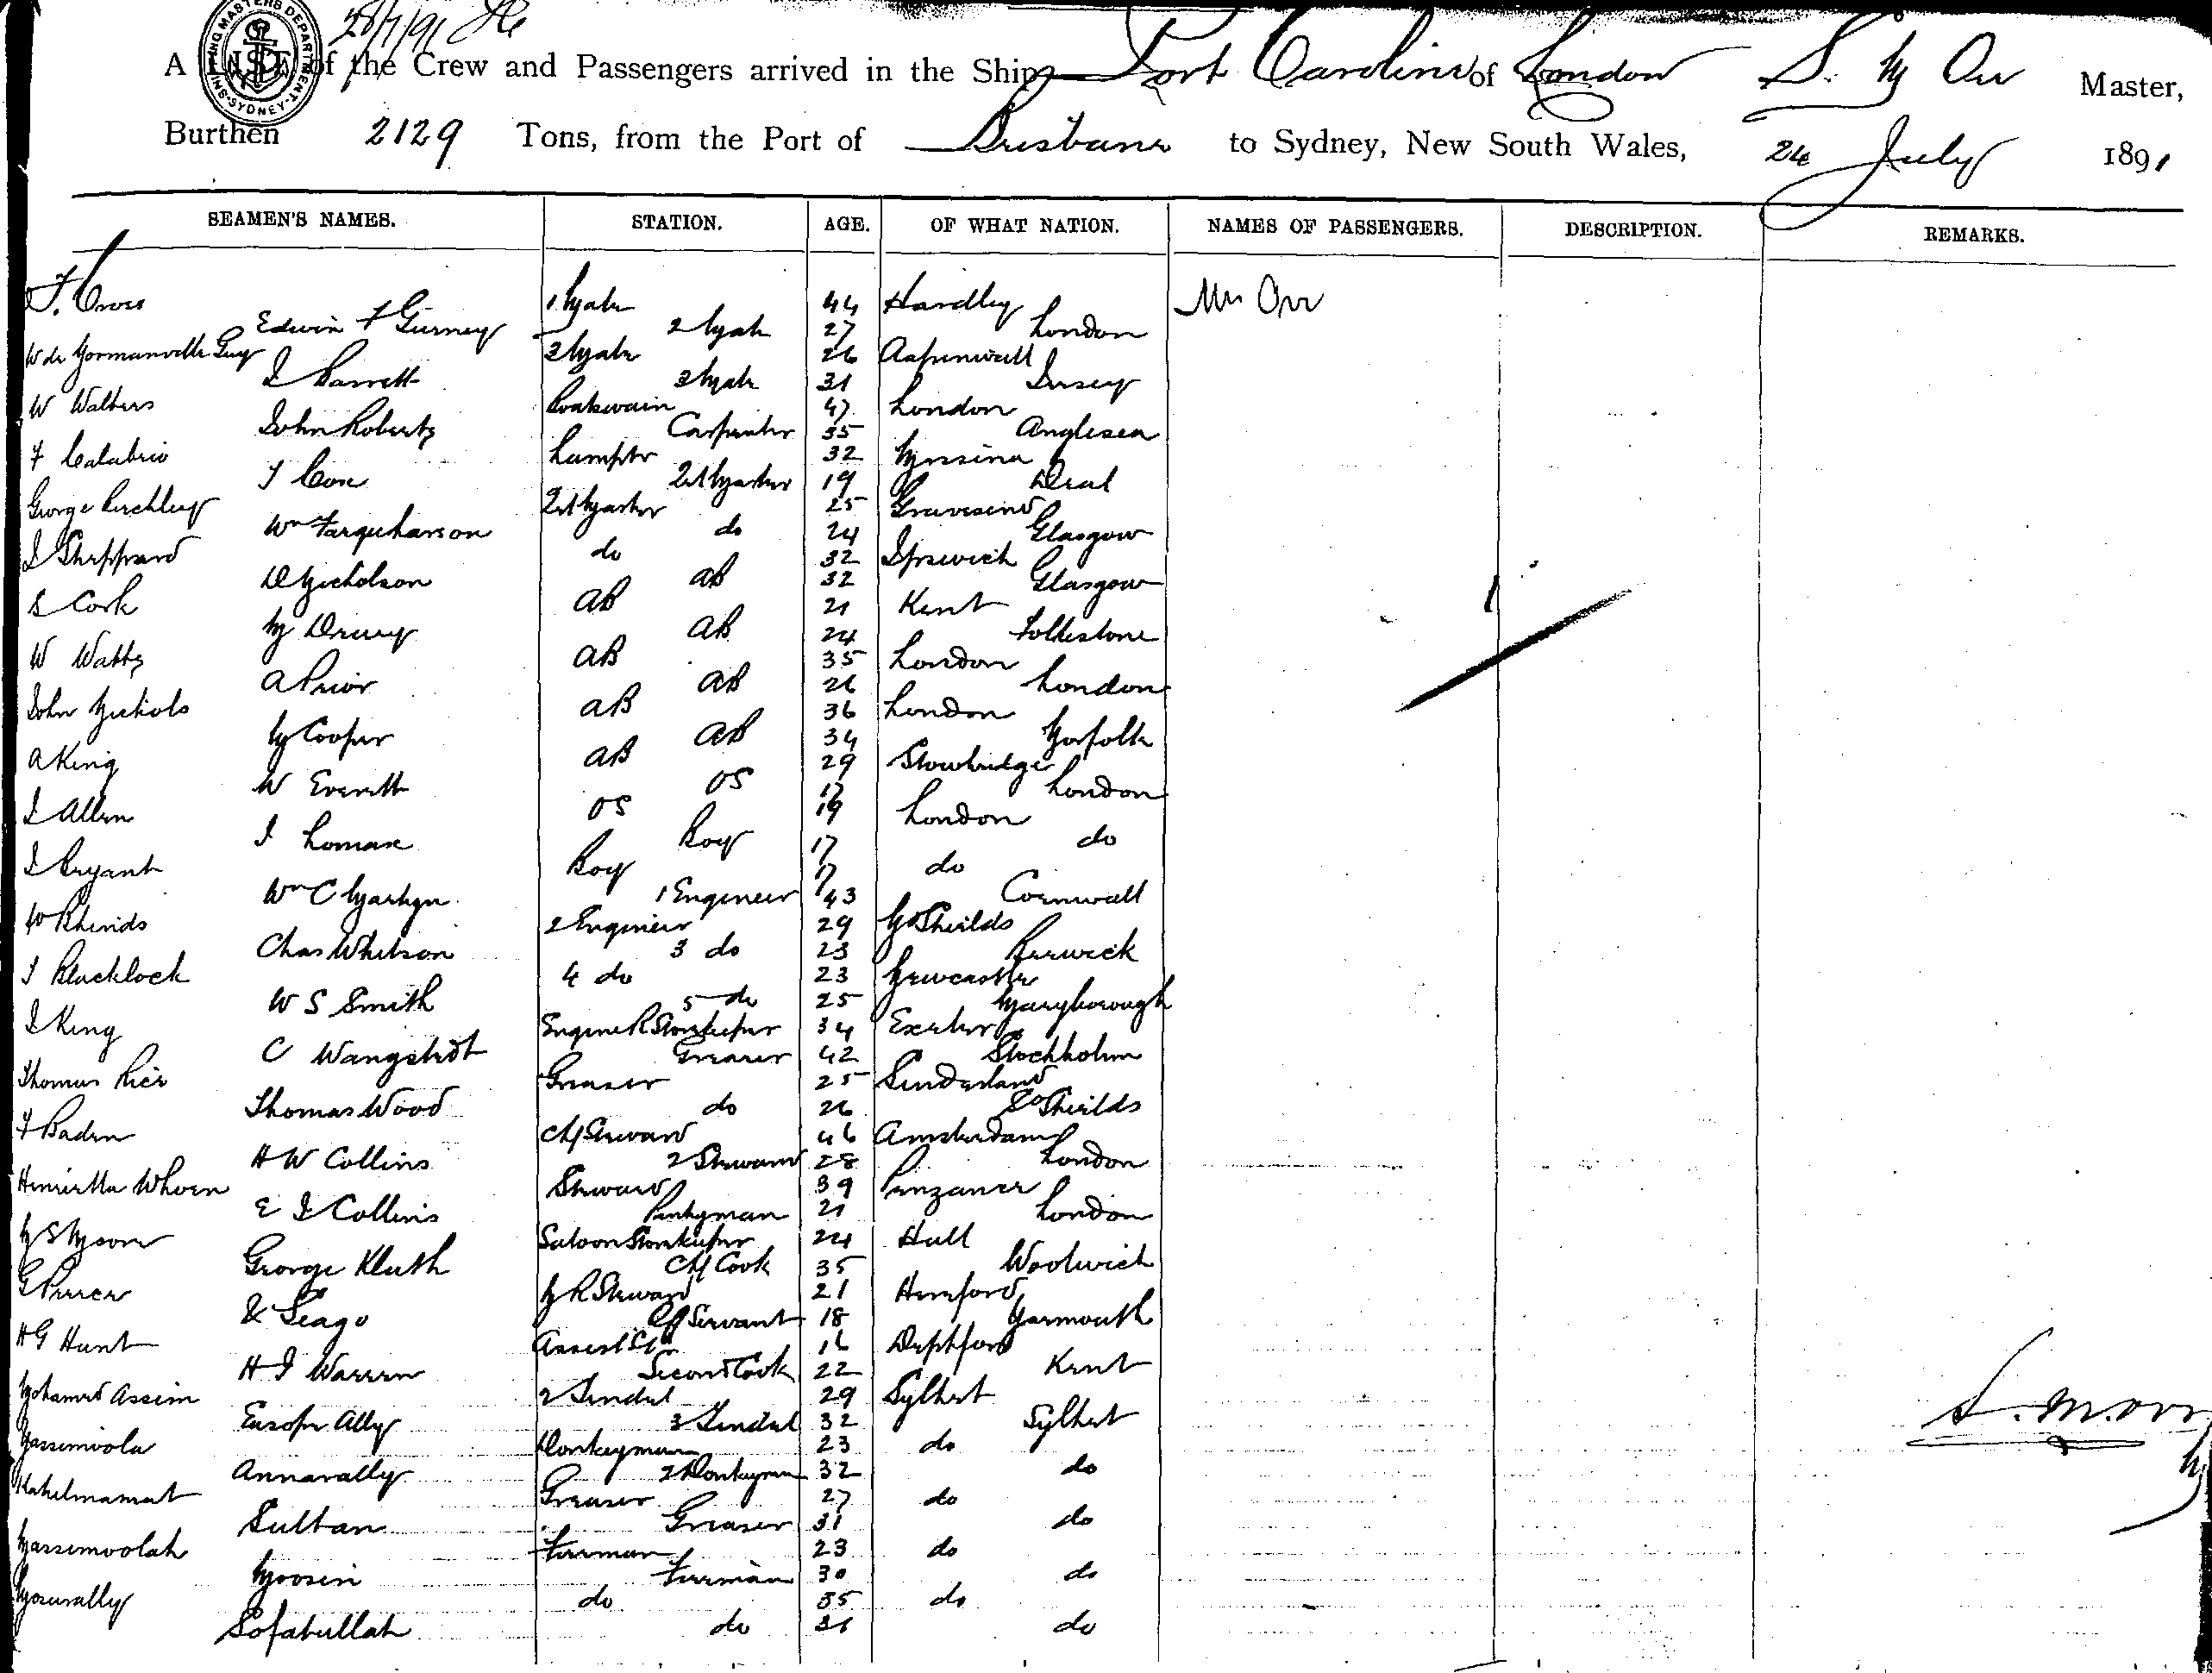 28/7/91
SHIPPING MASTERS DEPARTMENT SYDNEY
A LIST of the Crew and Passengers arrived in the Ship Port Caroline of London S. M Orr Master,
Burthen 2129 Tons, from the Port of Brisbane to Sydney, New South Wales, 24 July 1891
SEAMEN'S NAMES. STATION. AGE. OF WHAT NATION. NAMES OF PASSENGERS. DESCRIPTION. REMARKS.
F. Cross 1 Mate 44 Hardley Mrs Orr
Edwin F Gurney 2 Mate 27 London
W de Normanville Guy 3 Mate 26 Aspinwall
J Barrett 3 Mate 31 Jersey
W Walters Boatswain 47 London
John Roberts Carpenter 35 Anglesea
F Calabrio Lamptr 32 Messina
J Cox QrMaster 19 Deal
George Birchley QrMaster 25 Gravesend
Wm Farquharson do 24 Glasgow
J Sheppard do 32 Ipswich
D Nicholson AB 32 Glasgow
S Cork AB 21 Kent
M Drury AB 24 Folkestone
W Watts AB 35 London
A Prior AB 26 London
John Nichols AB 36 London
M Cooper AB 34 Norfolk
A King AB 29 Stowbridge
W Everett OS 17 London
J Allen OS 19 London
J Lomax Boy 17 do
J Bryant Boy 17 do
Wm C Martyn 1 Engineer 43 Cornwall
W Rhinds 2 Engineer 29 No Sheilds
Chas Whitson 3 do 23 Berwick
J Blacklock 4 do 23 Newcastle
W S Smith 5 do 25 Maryborough
J King Engine R Storekeeper 34 Exeter
C Wangstedt Greaser 42 Stockholm
Thomas Rice Greaser 25 Sunderland
Thomas Wood do 26 So Sheilds
F Baden Chf Steward 46 Amsterdam
H W Collins 2 Steward 28 London
Henrietta Steward 39 Penzance
E J Collins Pantryman 21 London
Saloon Storekeeper 24 Hull
George Kluth Chf Cook 35 Woolwich
G Pierce M R Steward 21 Hereford
Seago Servant 18 Yarmouth
H G Hunt Assist St 16 Deptford
H J Warren Second Cook 22 Kent
Mohamed Assim 2 Tindal 29 Sylhet
Eusope Ally 3 Tindal 32 Sylhet S. M. Orr
Donkeyman 23 do
Annarally 2 Donkeyman 32 do
Greaser 27 do
Sultan Greaser 31 do
Fireman 23 do
Moosin Fireman 30 do
do 35 do
Sofatullah do 31 do